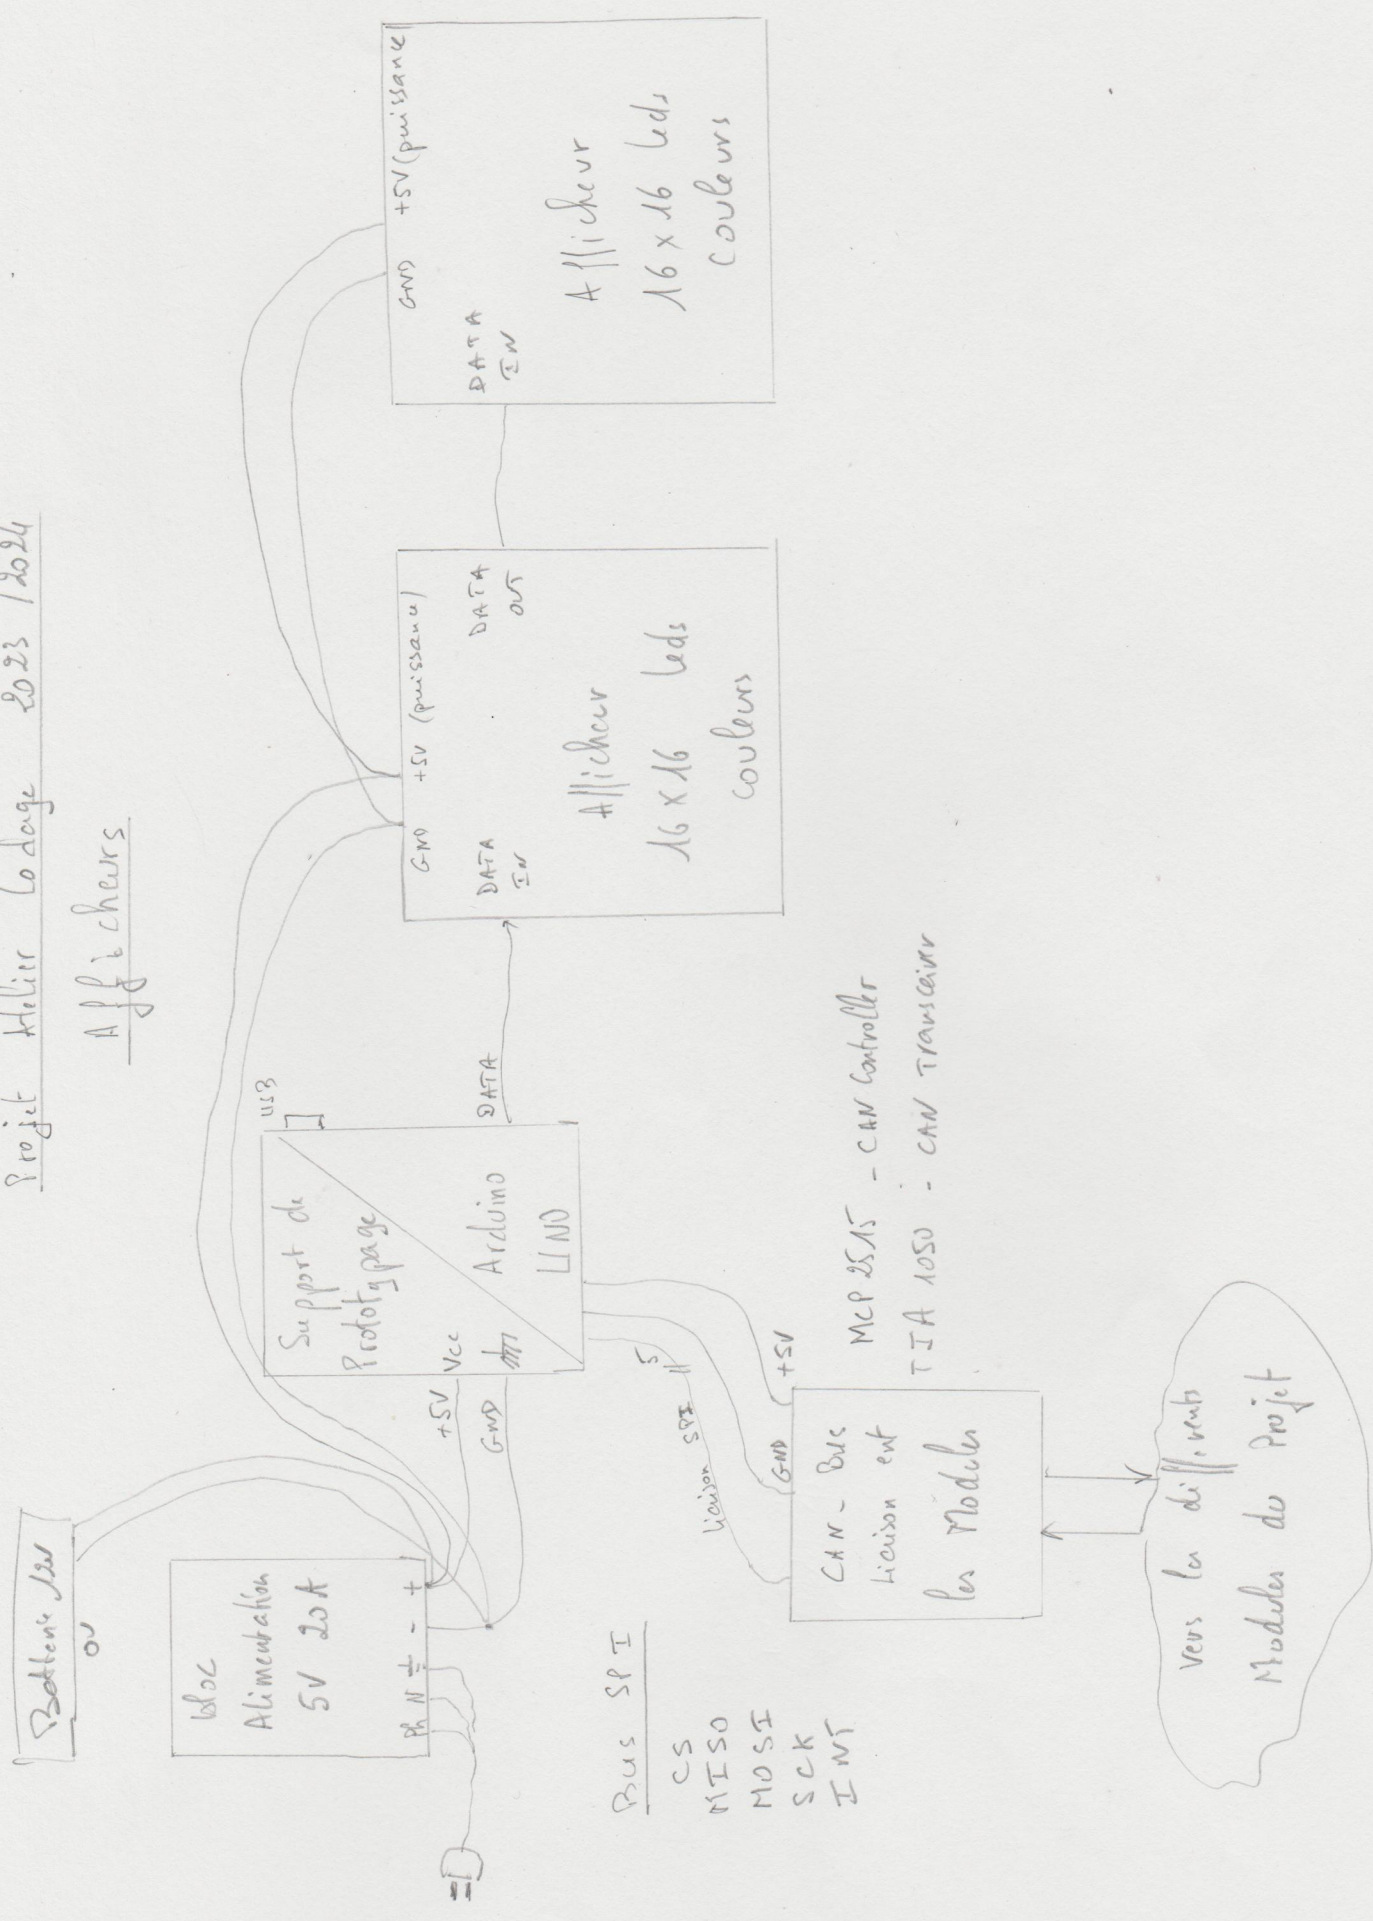 Projet Atelier Codage 2023/2024
Afficheurs
Batterie 12V
ou
bloc
Alimentation
5V 20A
Ph N - +
+5V
GND
Support de
Prototypage
Vcc
Arduino
UNO
USB
DATA
GND +5V (puissance)
DATA
IN
DATA
OUT
Afficheur
16 x 16 leds
couleurs
GND +5V (puissance)
DATA
IN
Afficheur
16 x 16 leds
couleurs
Bus SPI
CS
MISO
MOSI
SCK
INT
liaison SPI
5
GND
+5V
CAN-Bus
Liaison ent
les Modules
MCP 2515 - CAN Controller
TJA 1050 - CAN Transceiver
vers les différents
Modules du Projet